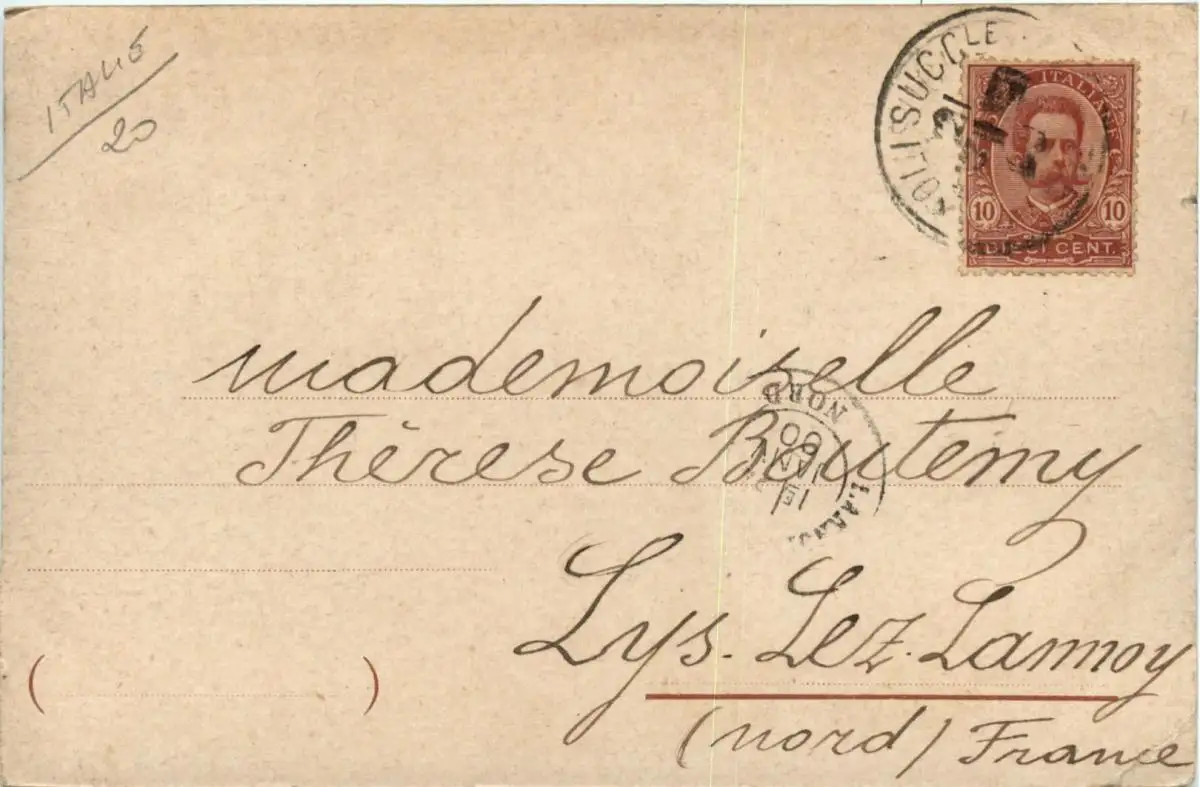 ITALIE
20
SUCCLE
21
ITALIANE
10 10
DIECI CENT.
mademoiselle
Thérèse Boutemy
NORD
JANV
00
Lys. Lez. Lannoy
(nord) France
( )